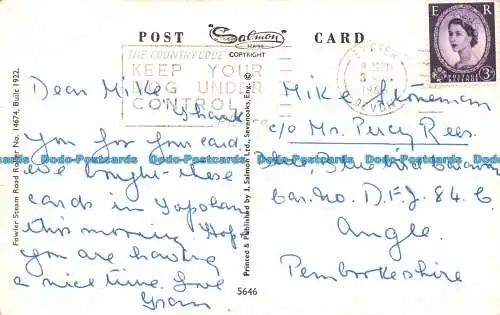 POST "Salmon" CARD
SERIES
COPYRIGHT
E R
POSTAGE REVENUE
3D
THE COUNTRY CODE
KEEP YOUR
DOG UNDER
CONTROL
EXETER
DEVON
Dear Mike
Thank
You for your card
we bought these
cards in Topsham
this morning. Hope
you are having
a nice time. Love
Gran
Mike Stoneman
c/o Mr. Percy Rees.
Bluebird Caravan
Car. No. D.F.J. 84. C
Angle.
Pembrokeshire
Fowler Steam Road Roller No. 14674. Built 1922.
Printed & Published by J. Salmon Ltd., Sevenoaks, Eng. ©
5646
Dodo-Postcards Dodo-Postcards Dodo-Postcards Dodo-Postcards Dodo-Postcards